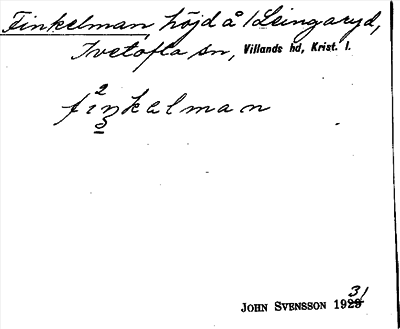 Finkelman, höjd å /Leingaryd,
Ivetofla sn, Villands hd, Krist. l.
2
fiŋkəlman
3
JOHN SVENSSON 1931